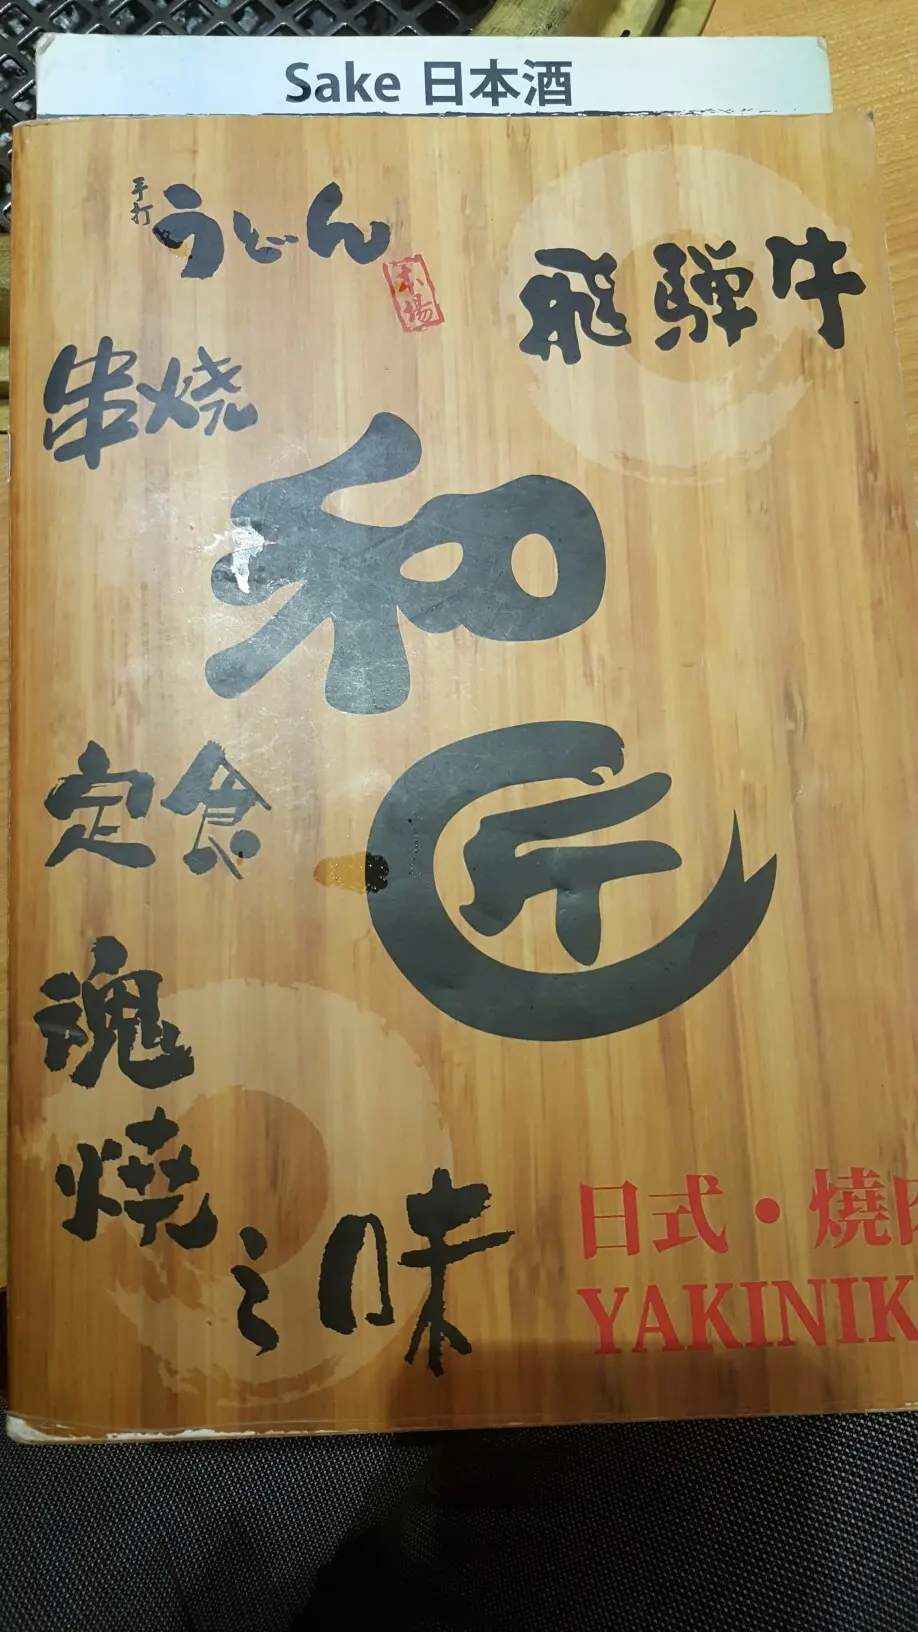 Sake 日本酒
手打
うどん
本場
飛騨牛
串焼
和
匠
定食
魂
焼
之味
日式・燒肉
YAKINIK